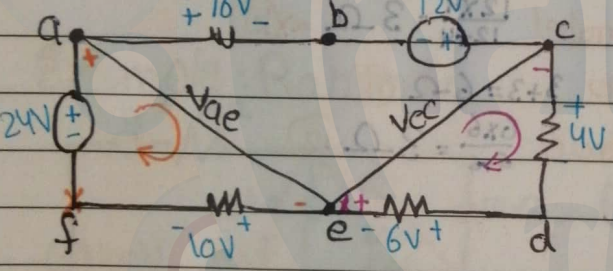 + 10V -
12V
a
b
- +
c
+
-
24V
+
-
Vae
Vec
+
4V
f
- 10V +
-
e
+
- 6V +
d